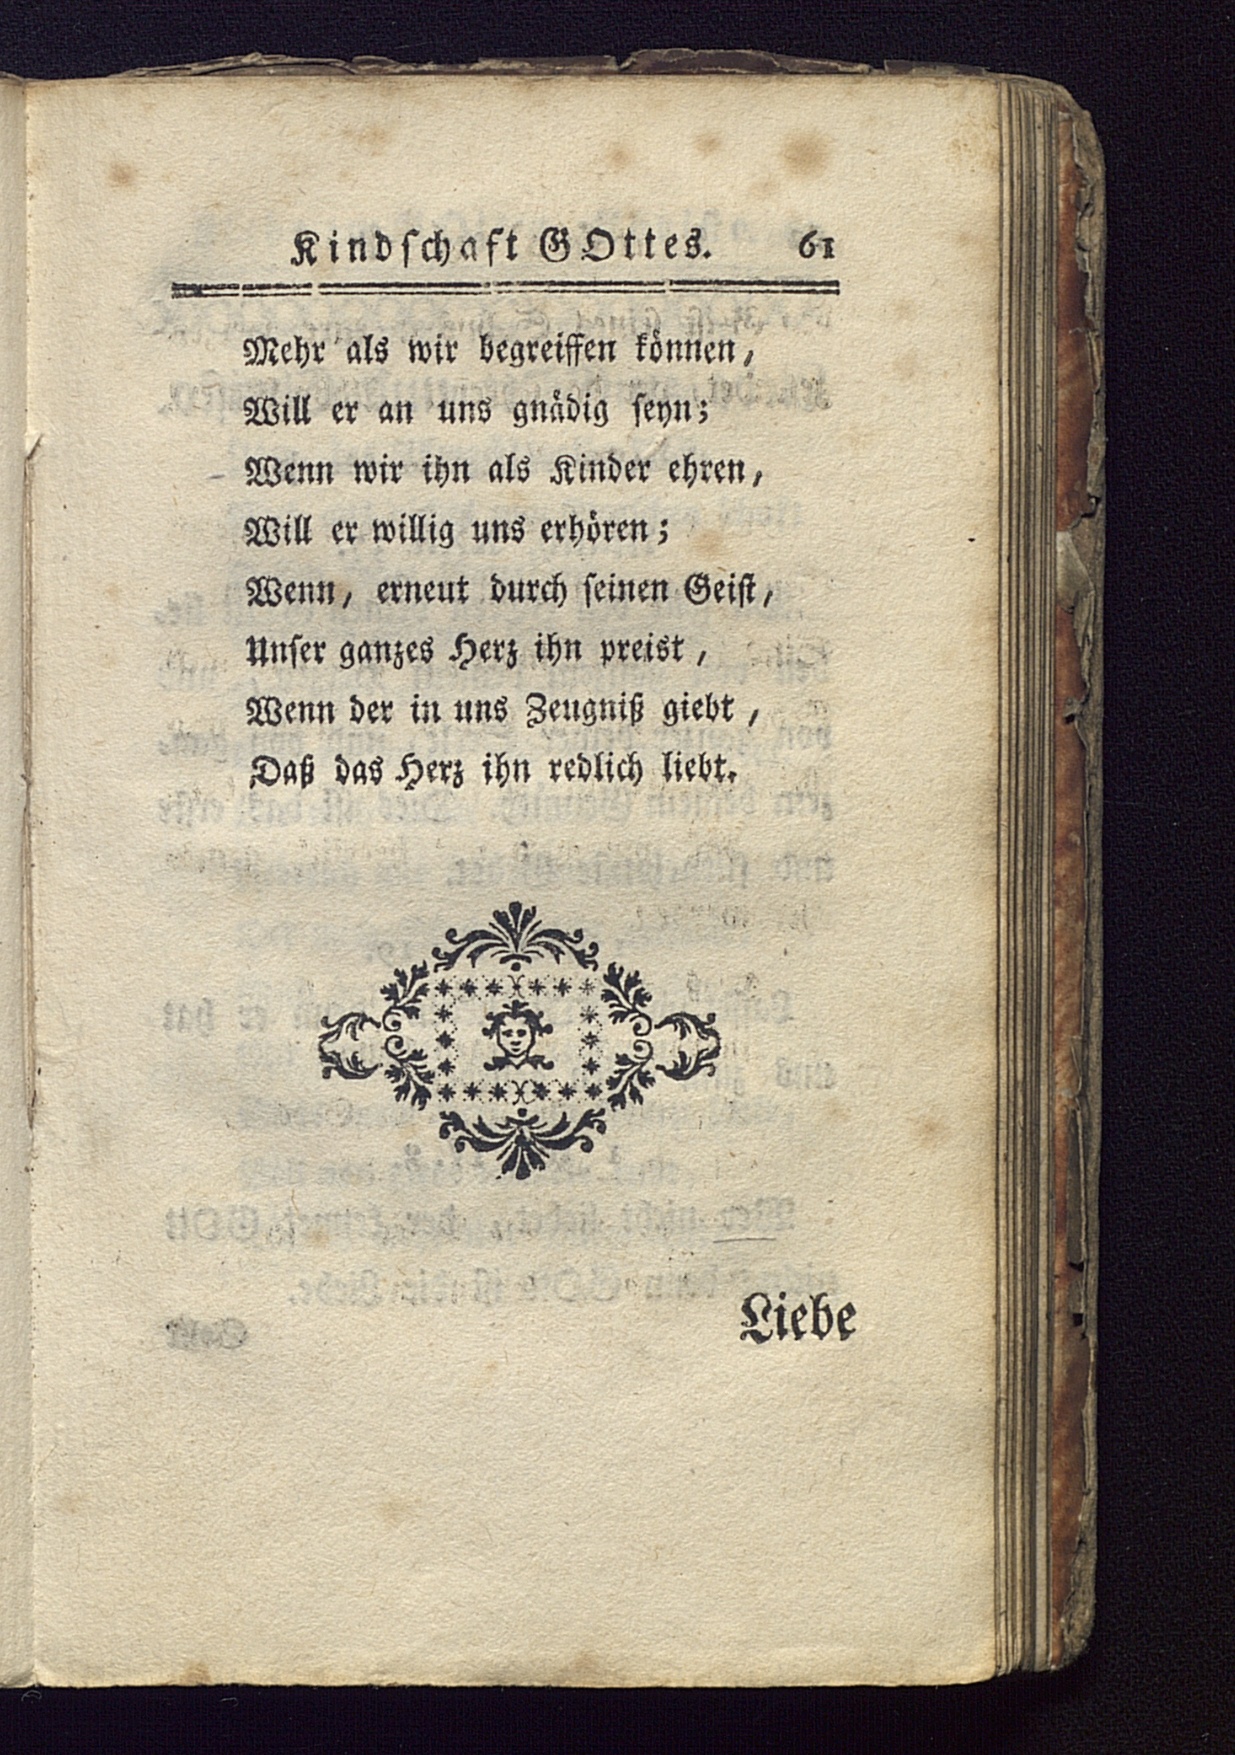 Kindschaft GOttes. 61
Mehr als wir begreiffen können,
Will er an uns gnädig seyn;
Wenn wir ihn als Kinder ehren,
Will er willig uns erhören;
Wenn, erneut durch seinen Geist,
Unser ganzes Herz ihn preist,
Wenn der in uns Zeugniß giebt,
Daß das Herz ihn redlich liebt.
Liebe